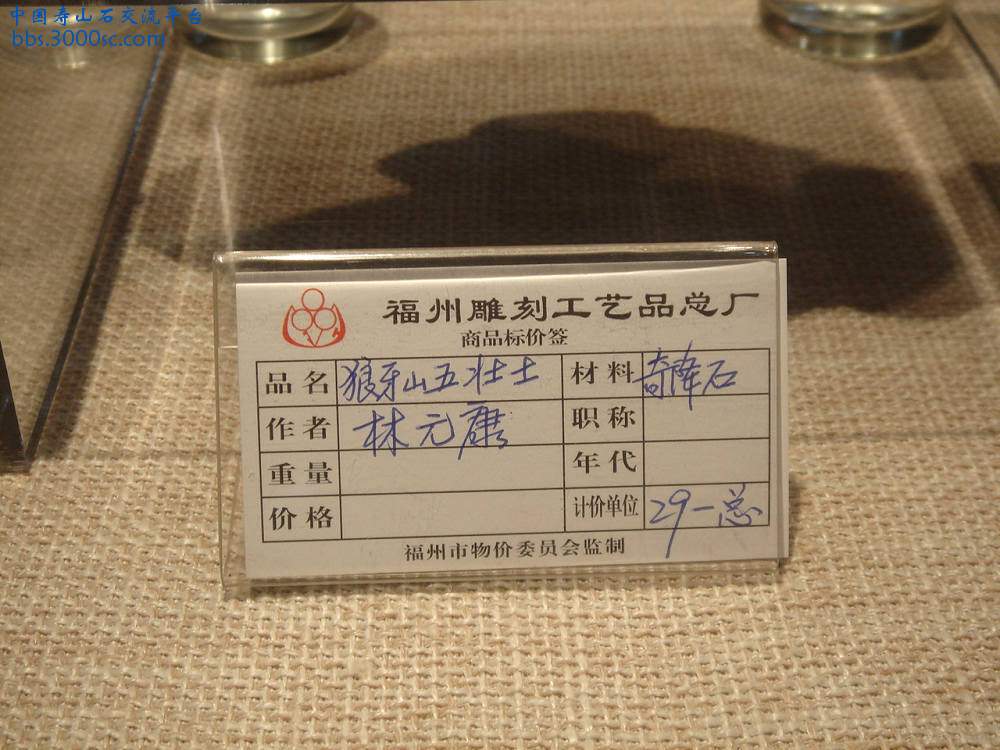 中国寿山石交流平台
bbs.3000sc.com
福州雕刻工艺品总厂
商品标价签
品名 狼牙山五壮士 材料 奇降石
作者 林元康 职称
重量 年代
价格 计价单位 29-总
福州市物价委员会监制